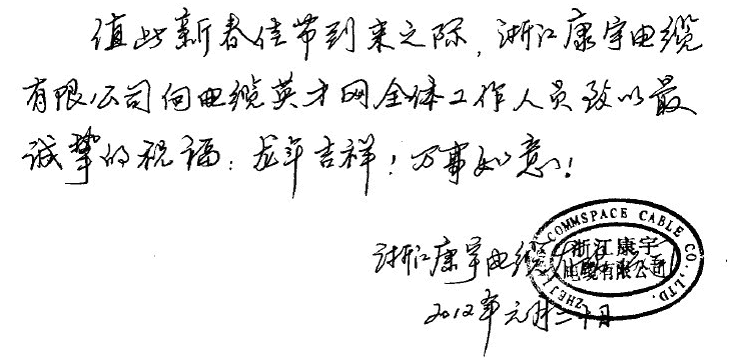 值此新春佳节到来之际，浙江康宇电缆
有限公司向电缆英才网全体工作人员致以最
诚挚的祝福：龙年吉祥！万事如意！
浙江康宇电缆有限公司
2012年元月二十日
ZHEJIANG COMMSPACE CABLE CO.,LTD.
浙江康宇
电缆有限公司